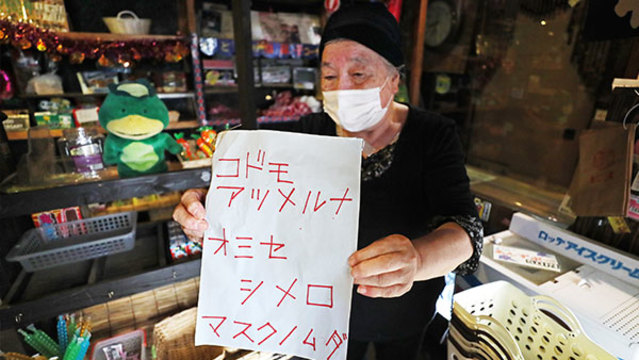 コドモ
アツメルナ
オミセ
シメロ
マスクノムダ
ロッテアイスクリーム